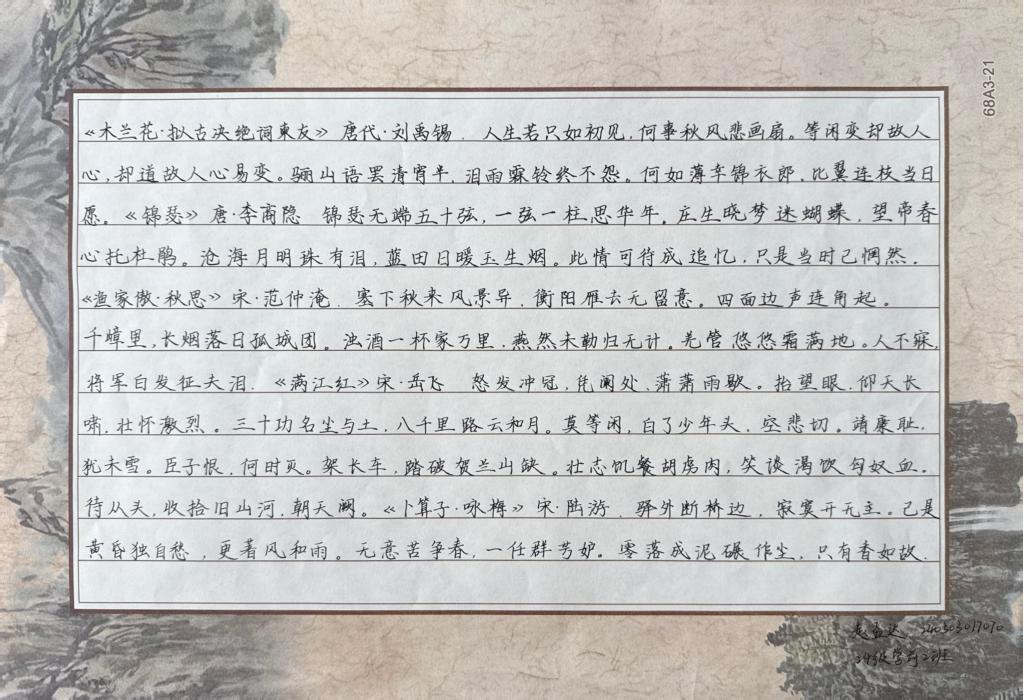 68A3-21
《木兰花·拟古决绝词柬友》唐代·刘禹锡. 人生若只如初见,何事秋风悲画扇。等闲变却故人
心,却道故人心易变。骊山语罢清宵半,泪雨霖铃终不怨。何如薄幸锦衣郎,比翼连枝当日
愿。《锦瑟》唐·李商隐 锦瑟无端五十弦,一弦一柱思华年。庄生晓梦迷蝴蝶,望帝春
心托杜鹃。沧海月明珠有泪,蓝田日暖玉生烟。此情可待成追忆,只是当时已惘然。
《渔家傲·秋思》宋·范仲淹. 塞下秋来风景异,衡阳雁去无留意。四面边声连角起。
千嶂里,长烟落日孤城团。浊酒一杯家万里,燕然未勒归无计。羌管悠悠霜满地。人不寐,
将军白发征夫泪.《满江红》宋·岳飞 怒发冲冠,凭阑处,潇潇雨歇。抬望眼.仰天长
啸,壮怀激烈。三十功名尘与土,八千里路云和月。莫等闲,白了少年头,空悲切。靖康耻.
犹未雪。臣子恨,何时灭。架长车,踏破贺兰山缺。壮志饥餐胡虏肉,笑谈渴饮匈奴血。
待从头,收拾旧山河,朝天阙。《卜算子·咏梅》宋·陆游. 驿外断桥边,寂寞开无主。已是
黄昏独自愁,更著风和雨。无意苦争春,一任群芳妒。零落成泥碾作尘,只有香如故.